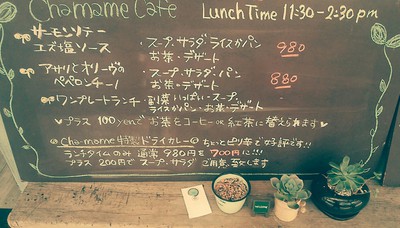 Chamame Cafe Lunch Time 11:30-2:30pm
サーモンソテー
ユズ塩ソース
・スープ・サラダ・ライスかパン
お茶・デザート
980
アサリとオリーヴの
ペペロンチーノ
・スープ・サラダ・パン
お茶・デザート
880
ワンプレートランチ・副菜いっぱい・スープ
ライスかパン・お茶・デザート
プラス 100yenで お茶をコーヒーor紅茶に替えられます
Chamame 特製ドライカレー ちょっとピリ辛で好評です!!
ランチタイムのみ 通常 980円を700円に!!!
プラス 200円で スープ・サラダ ご用意 致します